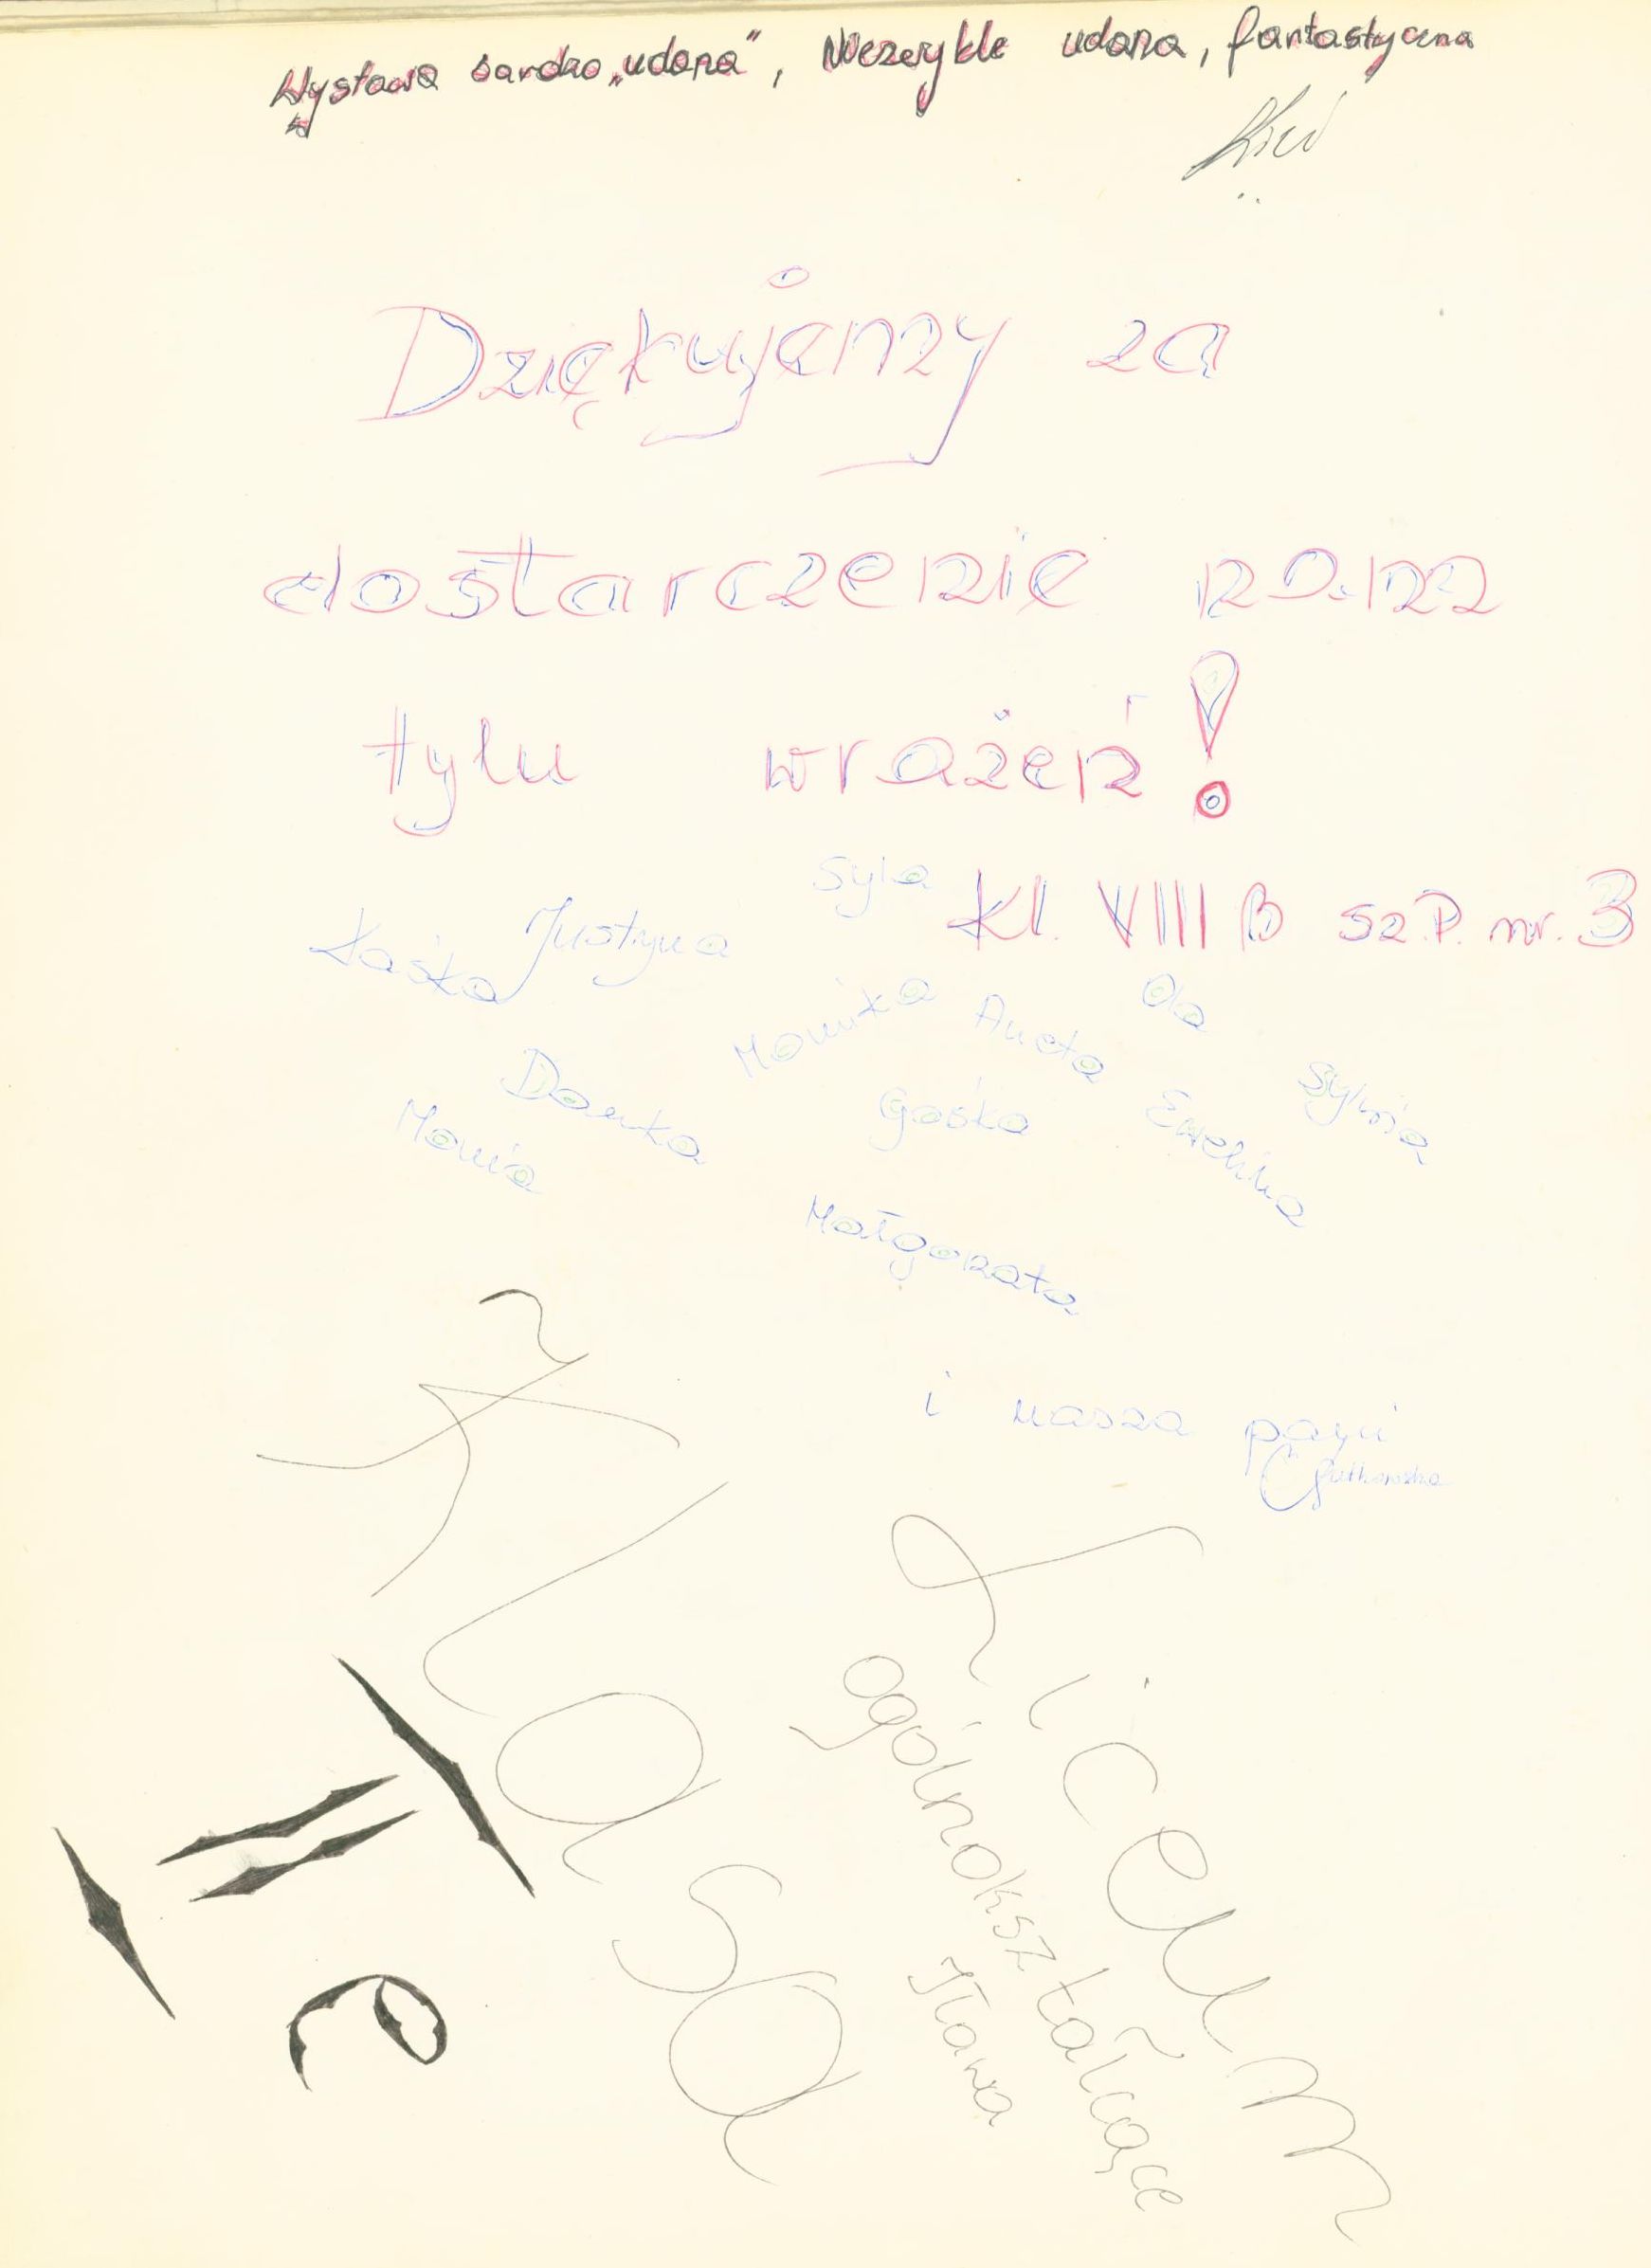 Wystawa bardzo „udana”, Niezwykle udana, fantastyczna
Dziękujemy za
dostarczenie nam
tylu wrażeń!
Kl. VIII B Sz.P. nr. 3
Syla
Justyna
Kaśka
Monika Aneta Ola Sylwia
Danka Gośka Ewelina
Monia
Małgorzata
i nasza pani
GGutkowska
Klasa
II e
Liceum
ogólnokształcące
Iława